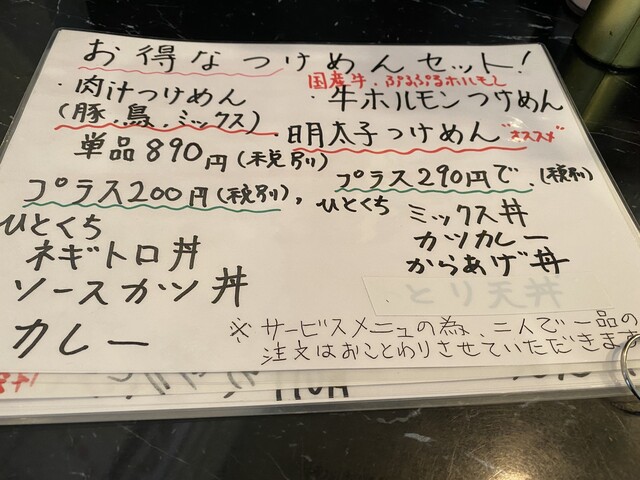 お得なつけめんセット!
・肉汁つけめん
(豚,鳥,ミックス)
国産牛・ぷるぷるホルモン
・牛ホルモンつけめん
・明太子つけめん オススメ
単品890円(税別)
プラス200円(税別),
ひとくち
ネギトロ丼
ソースカツ丼
カレー
プラス290円で.(税別)
ひとくち ミックス丼
カツカレー
からあげ丼
とり天丼
※サービスメニューの為、二人で一品の
注文はおことわりさせていただきます